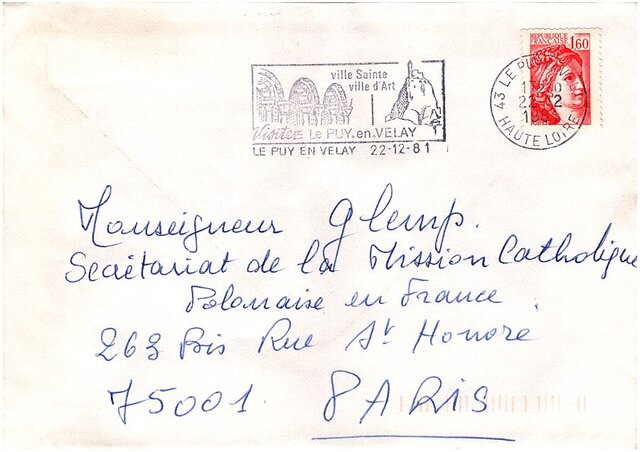 RÉPUBLIQUE
FRANÇAISE 1,60
ville Sainte
ville d'Art
Visitez Le PUY.en.VELAY
LE PUY EN VELAY 22-12-81
43 LE PUY
22-12
HAUTE LOIRE
Monseigneur Glemp.
Secrétariat de la Mission Catholique
Polonaise en France
263 Bis Rue St Honoré
75001 PARIS